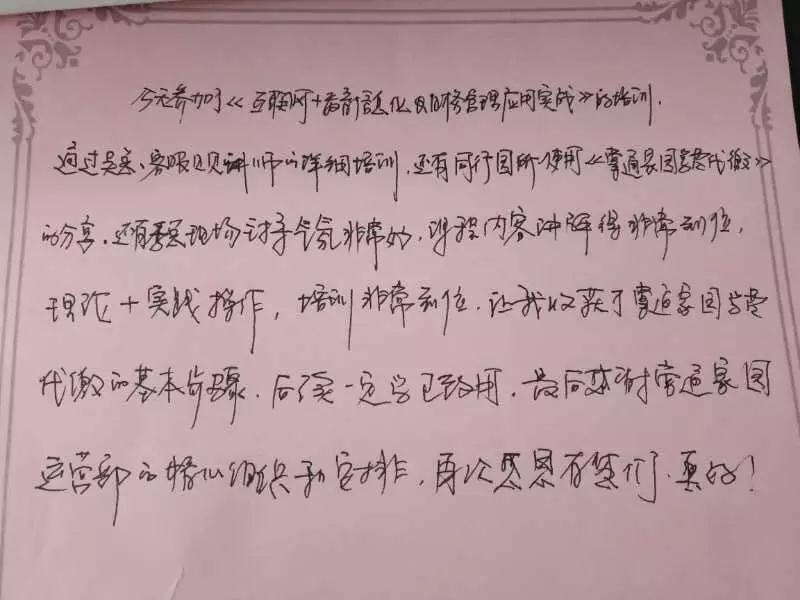 今天参加了《互联网+教育信息化及财务管理应用实战》的培训.
通过吴总、客服 讲师的详细培训,还有同行园所使用《掌通家园学费代缴》
的分享.还有 现场讨论气氛非常好.课程内容讲解得非常到位,
理论+实践操作,培训非常到位.让我收获了掌通家园学费
代缴的基本步骤.后续一定学已致用.最后感谢掌通家园
运营部的精心组织和安排,再次感恩有您们.真好!